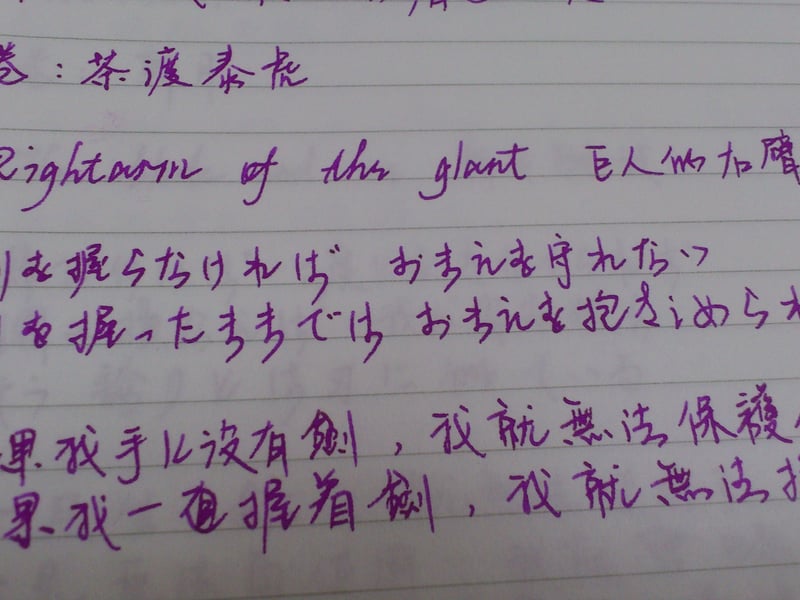 卷:茶渡泰虎
Rightarm of the giant 巨人的右臂
を握らなければ おまえを守れない
を握ったままでは おまえを抱きしめられ
果我手上没有劍,我就無法保護
果我一直握着劍,我就無法